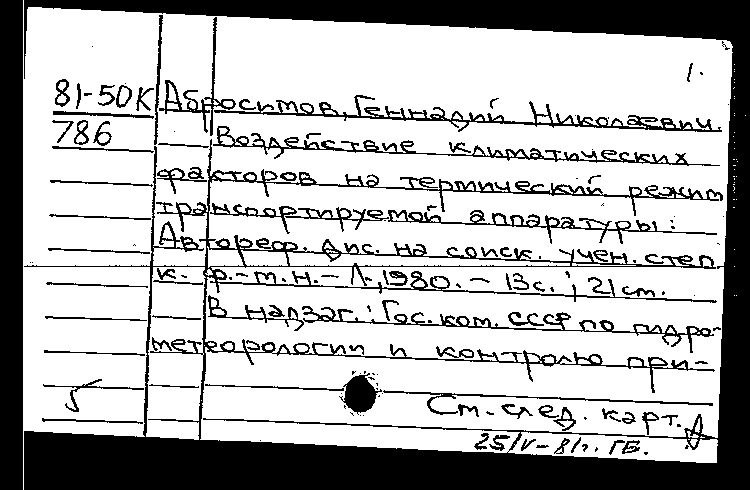 1.
81-50К Абросимов, Геннадий Николаевич.
786 Воздействие климатических
факторов на термический режим
транспортируемой аппаратуры:
Автореф. дис. на соиск. учен. степ.
к. ф.-т.н. - Л., 1980. - 13с.; 21 см.
В надзаг.: Гос. ком. СССР по гидро-
метеорологии и контролю при-
См. след. карт.
25/V-81г. ГБ.